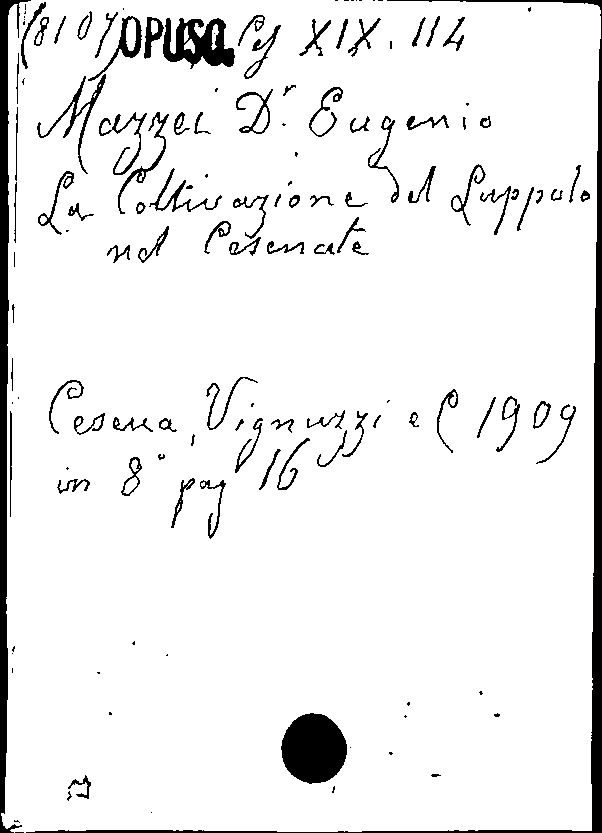 (8107) OPUSC. Ces XIX. 114
Mazzei Dr. Eugenio
La Coltivazione del Luppolo
nel Cesenate
Cesena, Vignuzzi e C 1909
in 8° pag 16